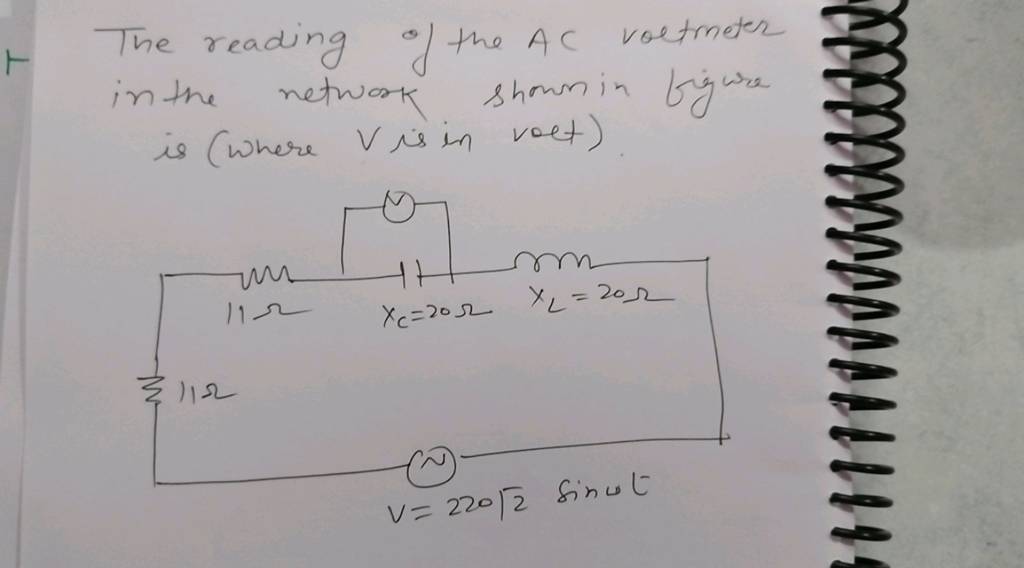 The reading of the AC voltmeter
in the network shown in figure
is (where V is in volt).
V
11Ω
Xc=20Ω
XL=20Ω
11Ω
V=220√2 Sinωt